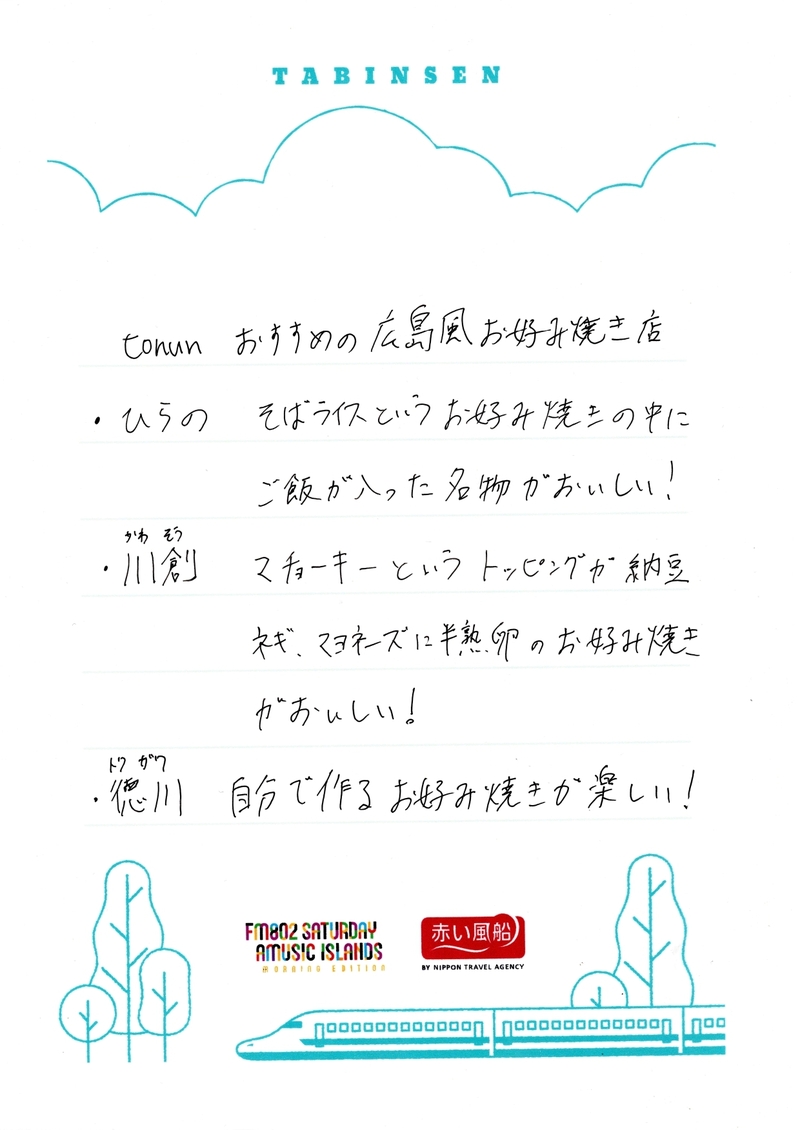 TABINSEN
tonun おすすめの広島風お好み焼き店
・ひらの そばライスというお好み焼きの中に
ご飯が入った名物がおいしい!
かわ そう
・川創 マチョーキーというトッピングが納豆
ネギ、マヨネーズに半熟卵のお好み焼き
がおいしい!
トク ガワ
・徳川 自分で作るお好み焼きが楽しい!
FM802 SATURDAY
AMUSIC ISLANDS
MORNING EDITION
赤い風船
BY NIPPON TRAVEL AGENCY